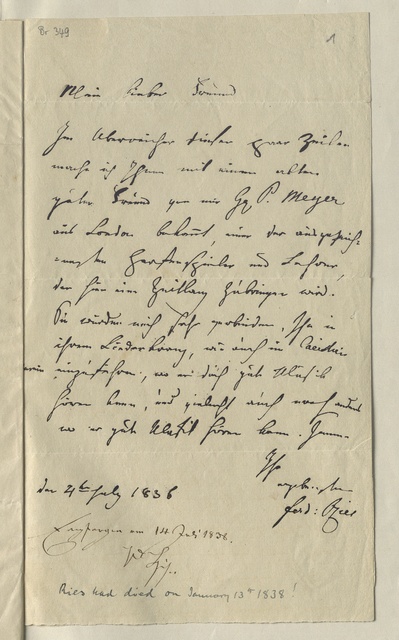 Br 349
1
Mein lieber Freund
Im Überreicher dieser paar Zeilen
mache ich Ihnen mit einen alten
guten Freund von mir P. Meyer
aus London bekannt, einer der ausgezeich-
nesten Harfenspieler und Lehrer,
der hier eine Zeitlang zubringen wird.
Sie würden mich sehr verbinden, Ihn in
ihrem Liederkranz, wie auch in
einzuführen, wo er gute Musik
hören kann, und vielleicht auch noch
wo er gute Musik hören kann.
Ihr
ergebenster
Ferd: Ries
den 4 July 1836
Empfangen am 14 Juli 1836.
Ries had died on January 13th 1838!